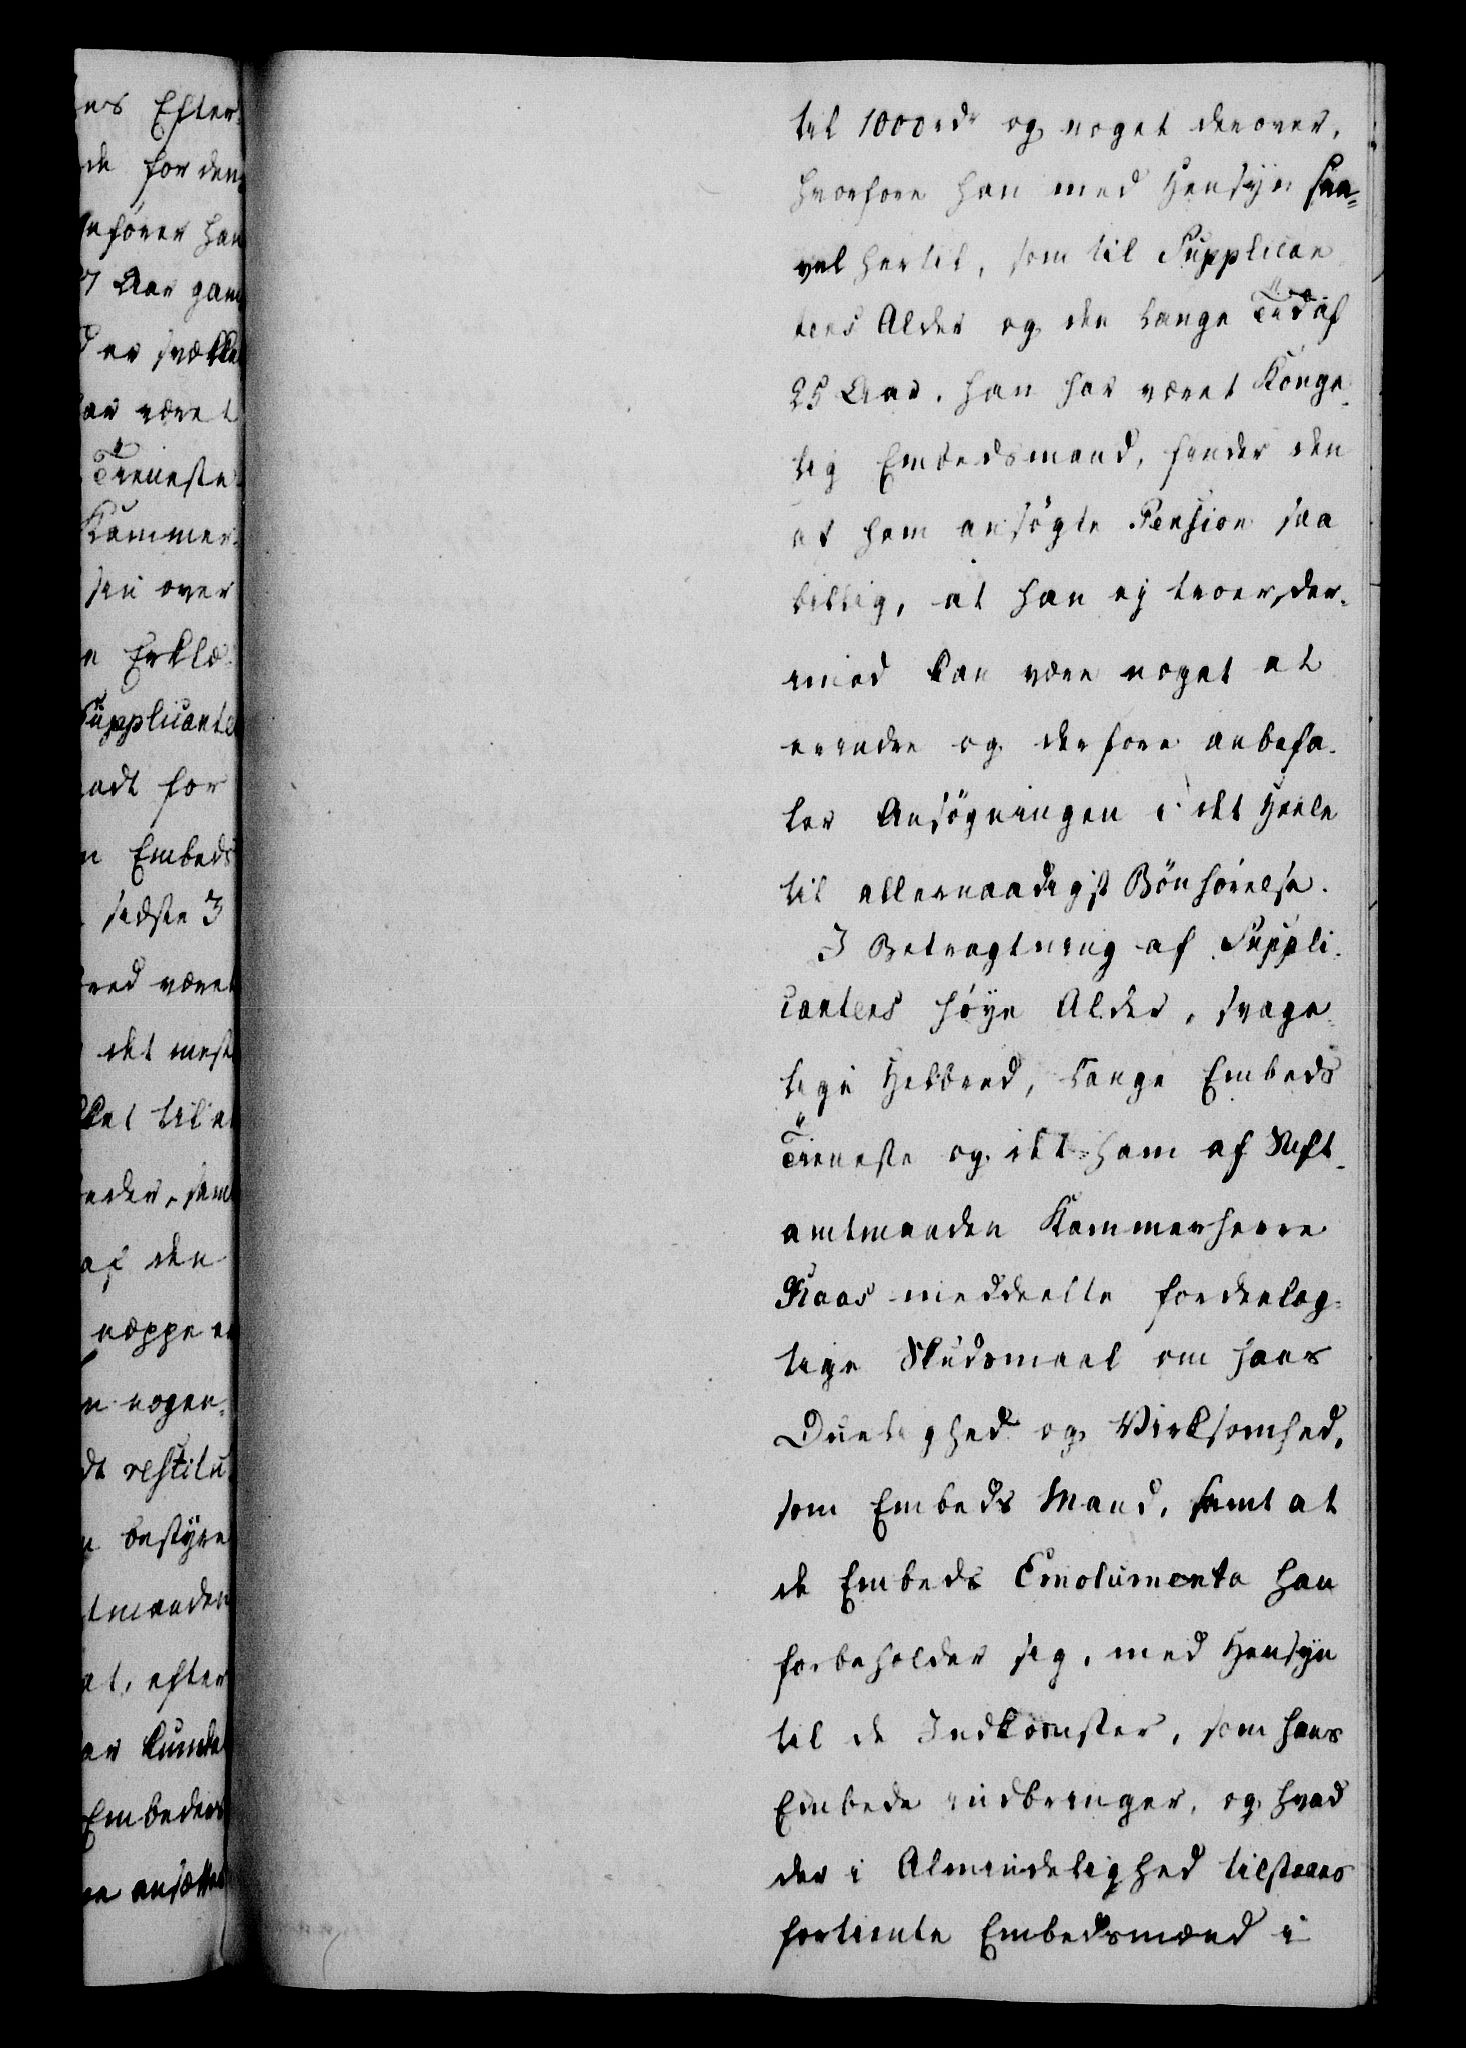 es Efter-
de for den
nfører han
7 Aar gam
d er svække
har været
Tieneste
Kammer-
sen over
n Erklæ-
Supplicante
adt for
n Embeds
sidste 3
bred været
det meste
ket til a
eder, sam
af den
næppe e
n nogen-
dt restitu
bestyre
tmanden
at, efter
ar kunde
Embeders
ansætte
til 1000 rdr og noget derover,
hvorfore han med Hensyn saa-
vel hertil, som til Supplican
tens Alder og den lange Tid af
25 Aar, han har været Konge-
lig Embedsmand, finder den
af ham ansøgte Pension saa
billig, at han ej troer, der-
imod kan være noget at
erindre og derfore anbefa-
ler Ansøgningen i det Heele
til allernaadigst Bönhørelse.
I Betragtning af Suppli-
cantens høye Alder, svage-
lige Helbred, lange Embeds
Tieneste og det ham af Stift-
amtmanden Kammerherre
Kaas meddeelte fordeelag-
tige Skudsmael om hans
Duelighed og Virksomhed,
som Embeds Mand, samt at
de Embeds Emolumenta han
forbeholder sig, med Hensyn
til de Indkomster, som hans
Embede indbringer, og hvad
der i Almindelighed tilstaaes
fortiente Embedsmænd i